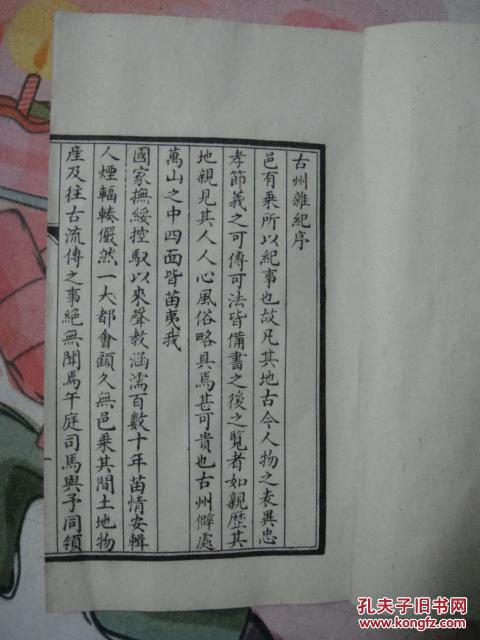 古州雜紀序
邑有乘所以紀事也故凡其地古今人物之表異忠
孝節義之可傳可法皆備書之後之覽者如親歷其
地親見其人人心風俗略具焉甚可貴也古州僻處
萬山之中四面皆苗夷我
國家撫綏控馭以來聲教涵濡百數十年苗情安輯
人煙輻輳儼然一大都會顧久無邑乘其間土地物
產及往古流傳之事絕無聞焉午庭司馬與予同領
孔夫子旧书网
www.kongfz.com